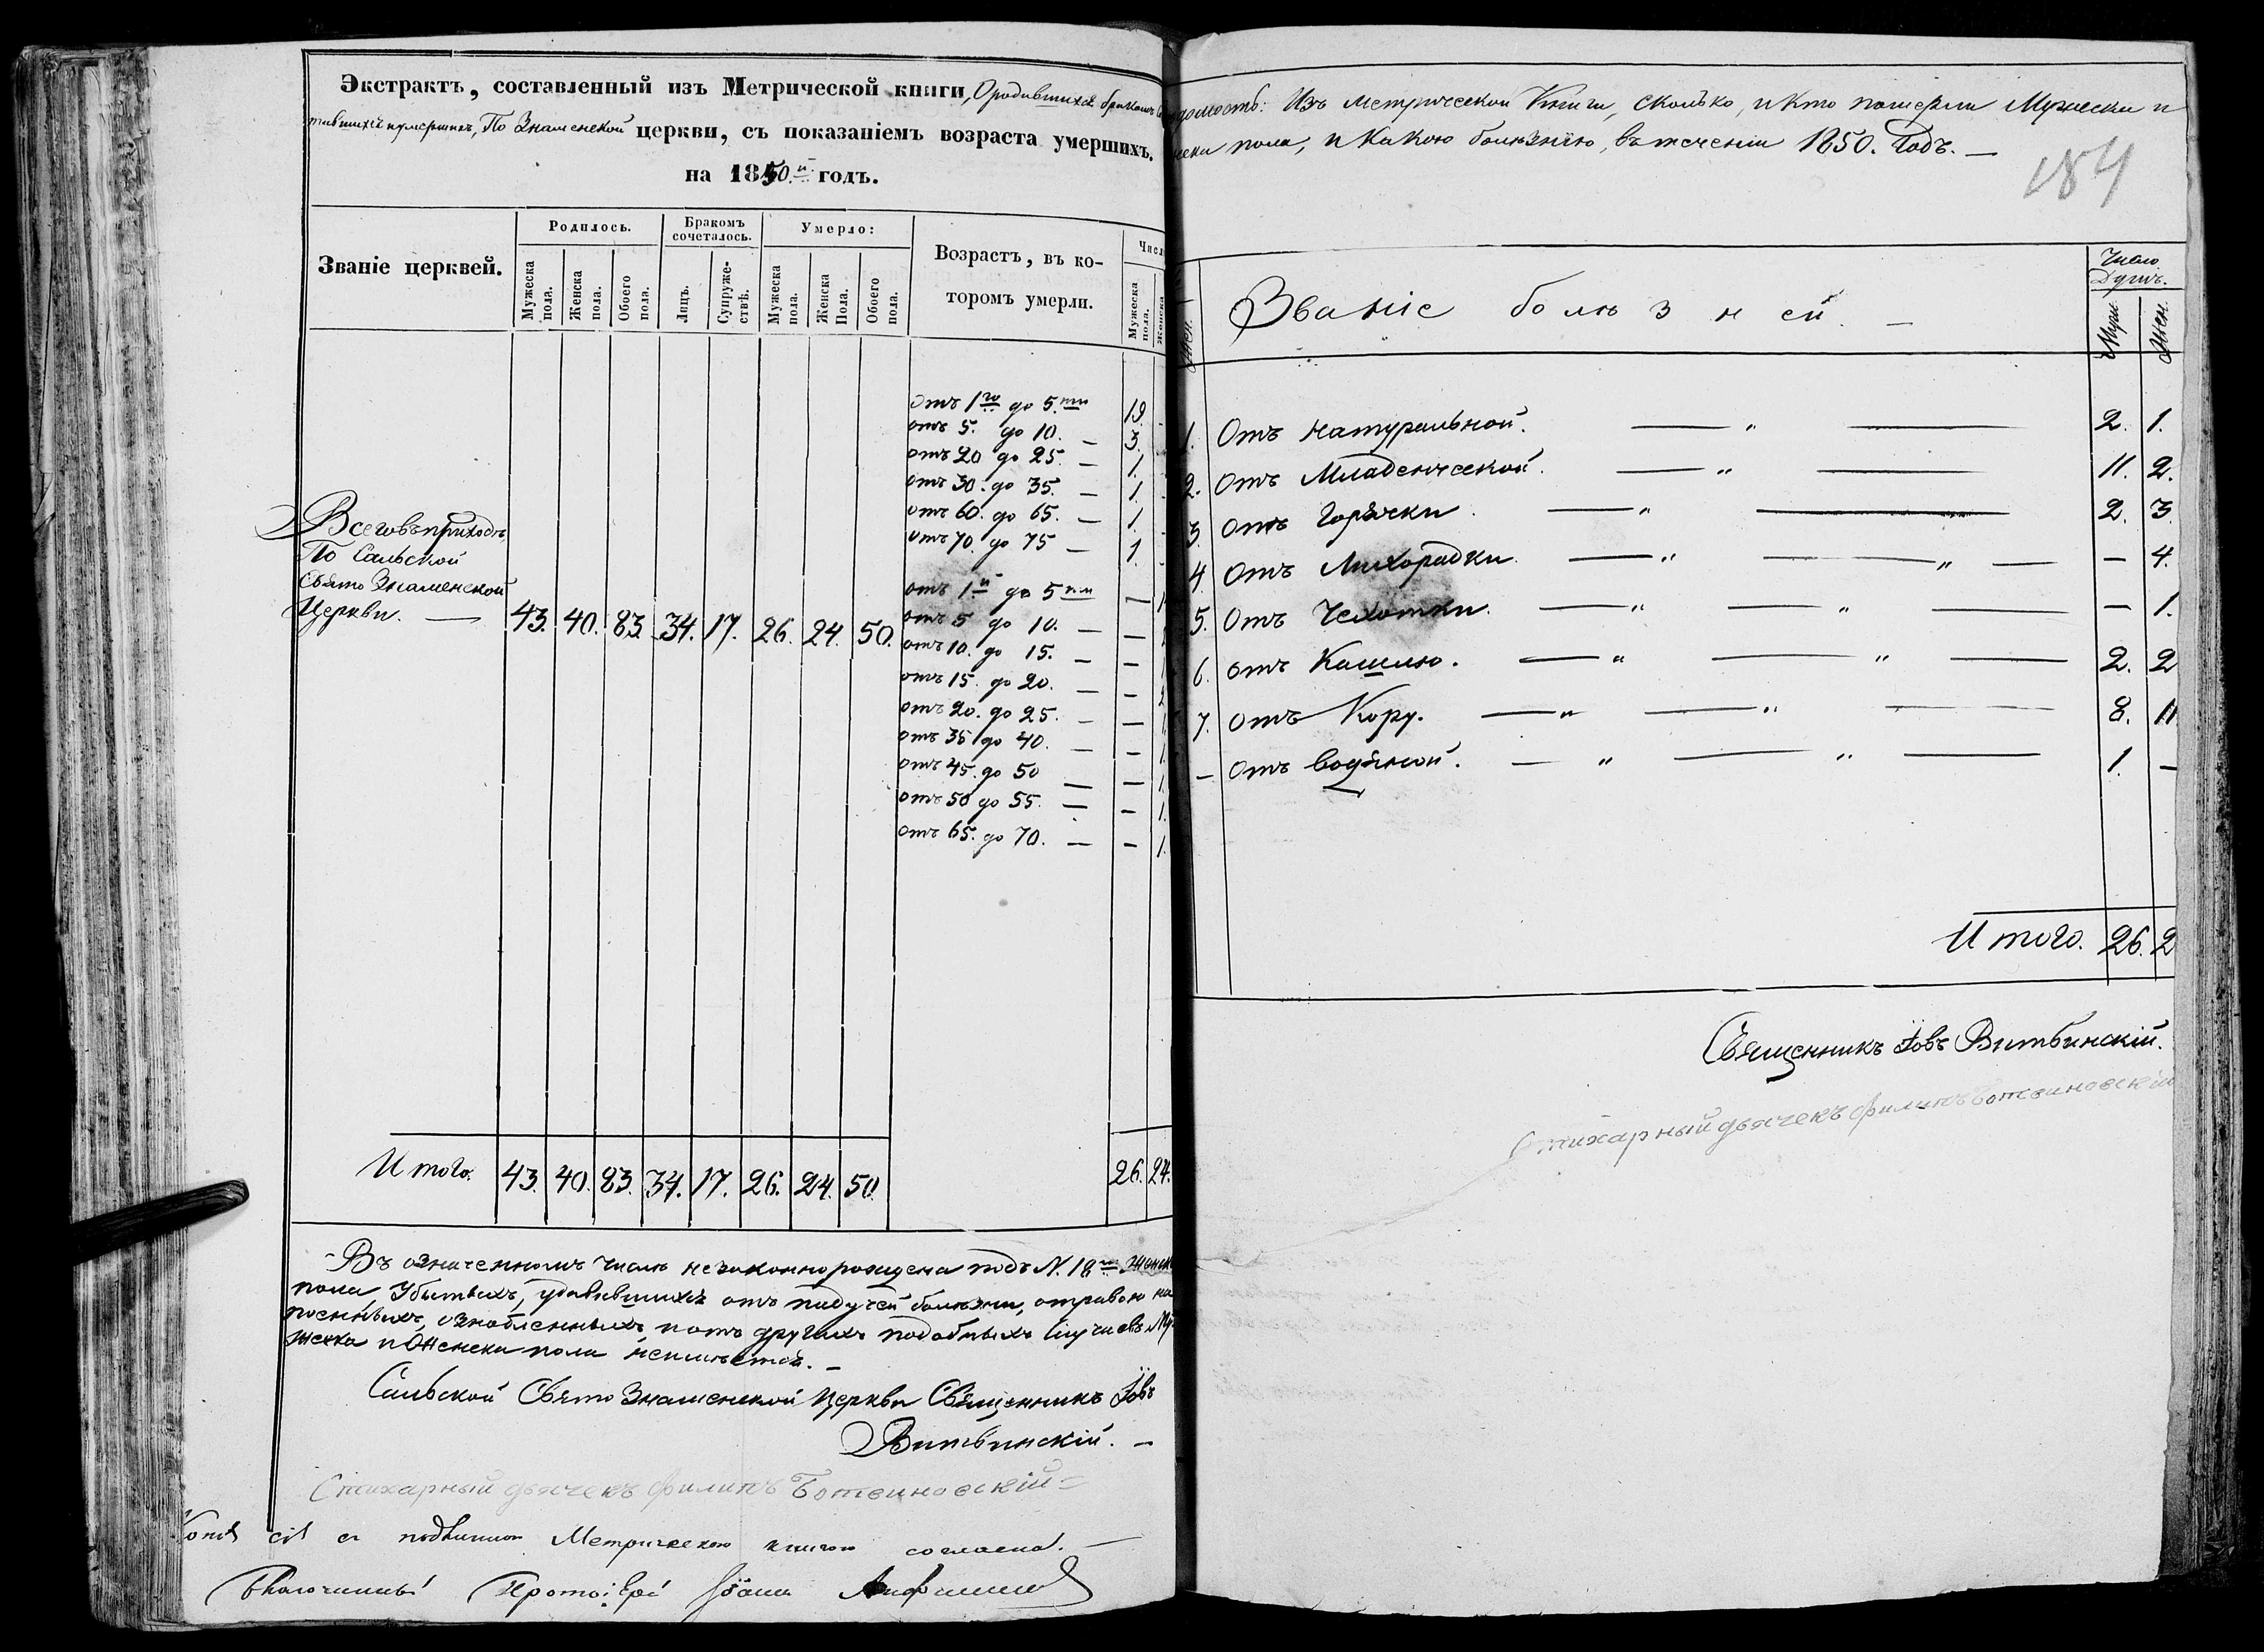 Экстрактъ, составленный изъ Метрической книги, О родившихся бракомъ
тавшихся и умершихъ, По Знаменской церкви, съ показаніемъ возраста умершихъ.
на 1850.й годъ.
Званіе церквей.
Родилось.
Бракомъ сочеталось.
Умерло:
Возрастъ, въ которомъ умерли.
Числ
Мужеска пола.
Женска пола.
Обоего пола.
Лицъ.
Супружествъ.
Мужеска пола.
Женска Пола.
Обоего пола.
Мужеска пола.
Женска
отъ 1го до 5.ти 19.
отъ 5. до 10. — 3.
отъ 20 до 25. — 1.
отъ 30. до 35. — 1.
отъ 60. до 65. — 1.
отъ 70. до 75 — 1.
отъ 1й до 5ти —
отъ 5 до 10. — —
отъ 10. до 15. — —
отъ 15. до 20. — —
отъ 20. до 25. — —
отъ 35 до 40. — — 1.
отъ 45. до 50 — — 1.
отъ 50 до 55. — — 1.
отъ 65. до 70. — — 1.
Всего въ приходѣ
По Сальской
Свято Знаменской
Церкви. — 43. 40. 83. 34. 17. 26. 24. 50.
Итого. 43. 40. 83. 34. 17. 26. 24. 50. 26. 24.
Въ означенномъ числѣ незаконнорождена подъ N. 18м женск
пола, Убитыхъ, удавившихся отъ падучей болѣзни, отравою
ознобленныхъ, и отъ другихъ подобныхъ случаевъ Му
жеска и Женска пола неимѣется. —
Сальской Свято Знаменской Церкви Священникъ Іовъ
Витбинскій. —
Стихарный дьячекъ Филипъ Ботвиновскій
съ подлинною Метрическою книгою согласна. —
Благочинный Протоіерей Іоаннъ
домость: Изъ Метрической Книги, сколько, и кто померли Мужеска и
нска пола, и Какою болѣзнію, въ теченіи 1850. Годъ. —
184
Званіе болѣзней. —
Число Душъ.
Муж.
Жен.
1. Отъ натуральной. 2. 1.
2. Отъ Младенческой. 11. 2.
3. Отъ Горячки. 2. 3.
4. Отъ Лихорадки. — 4.
5. Отъ Чехотки. — 1.
6. отъ Кашлю. 2. 2
7. отъ Кору. 8. 11
— отъ водяной. 1. —
Итого. 26. 2
Священникъ Іовъ Витбинскій.
Стихарный дьячекъ Филипъ Ботвиновскій